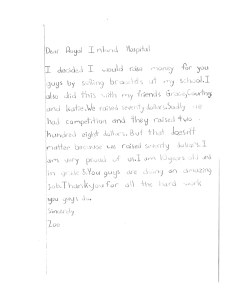 Dear Royal Inland Hospital
I decided I would raise money for you
guys by selling bracelets at my school.I
also did this with my friends Grace,Courtney
and katie.We raised seventy dollars.Sadly we
had competition and they raised two
hundred eight dollars.But that doesn't
matter because we raised seventy dollars.I
am very proud of us.I am 10 years old and
in grade 5.You guys are doing an amazing
job.Thankyou for all the hard work
you guys do.
Sincerely
Zoe